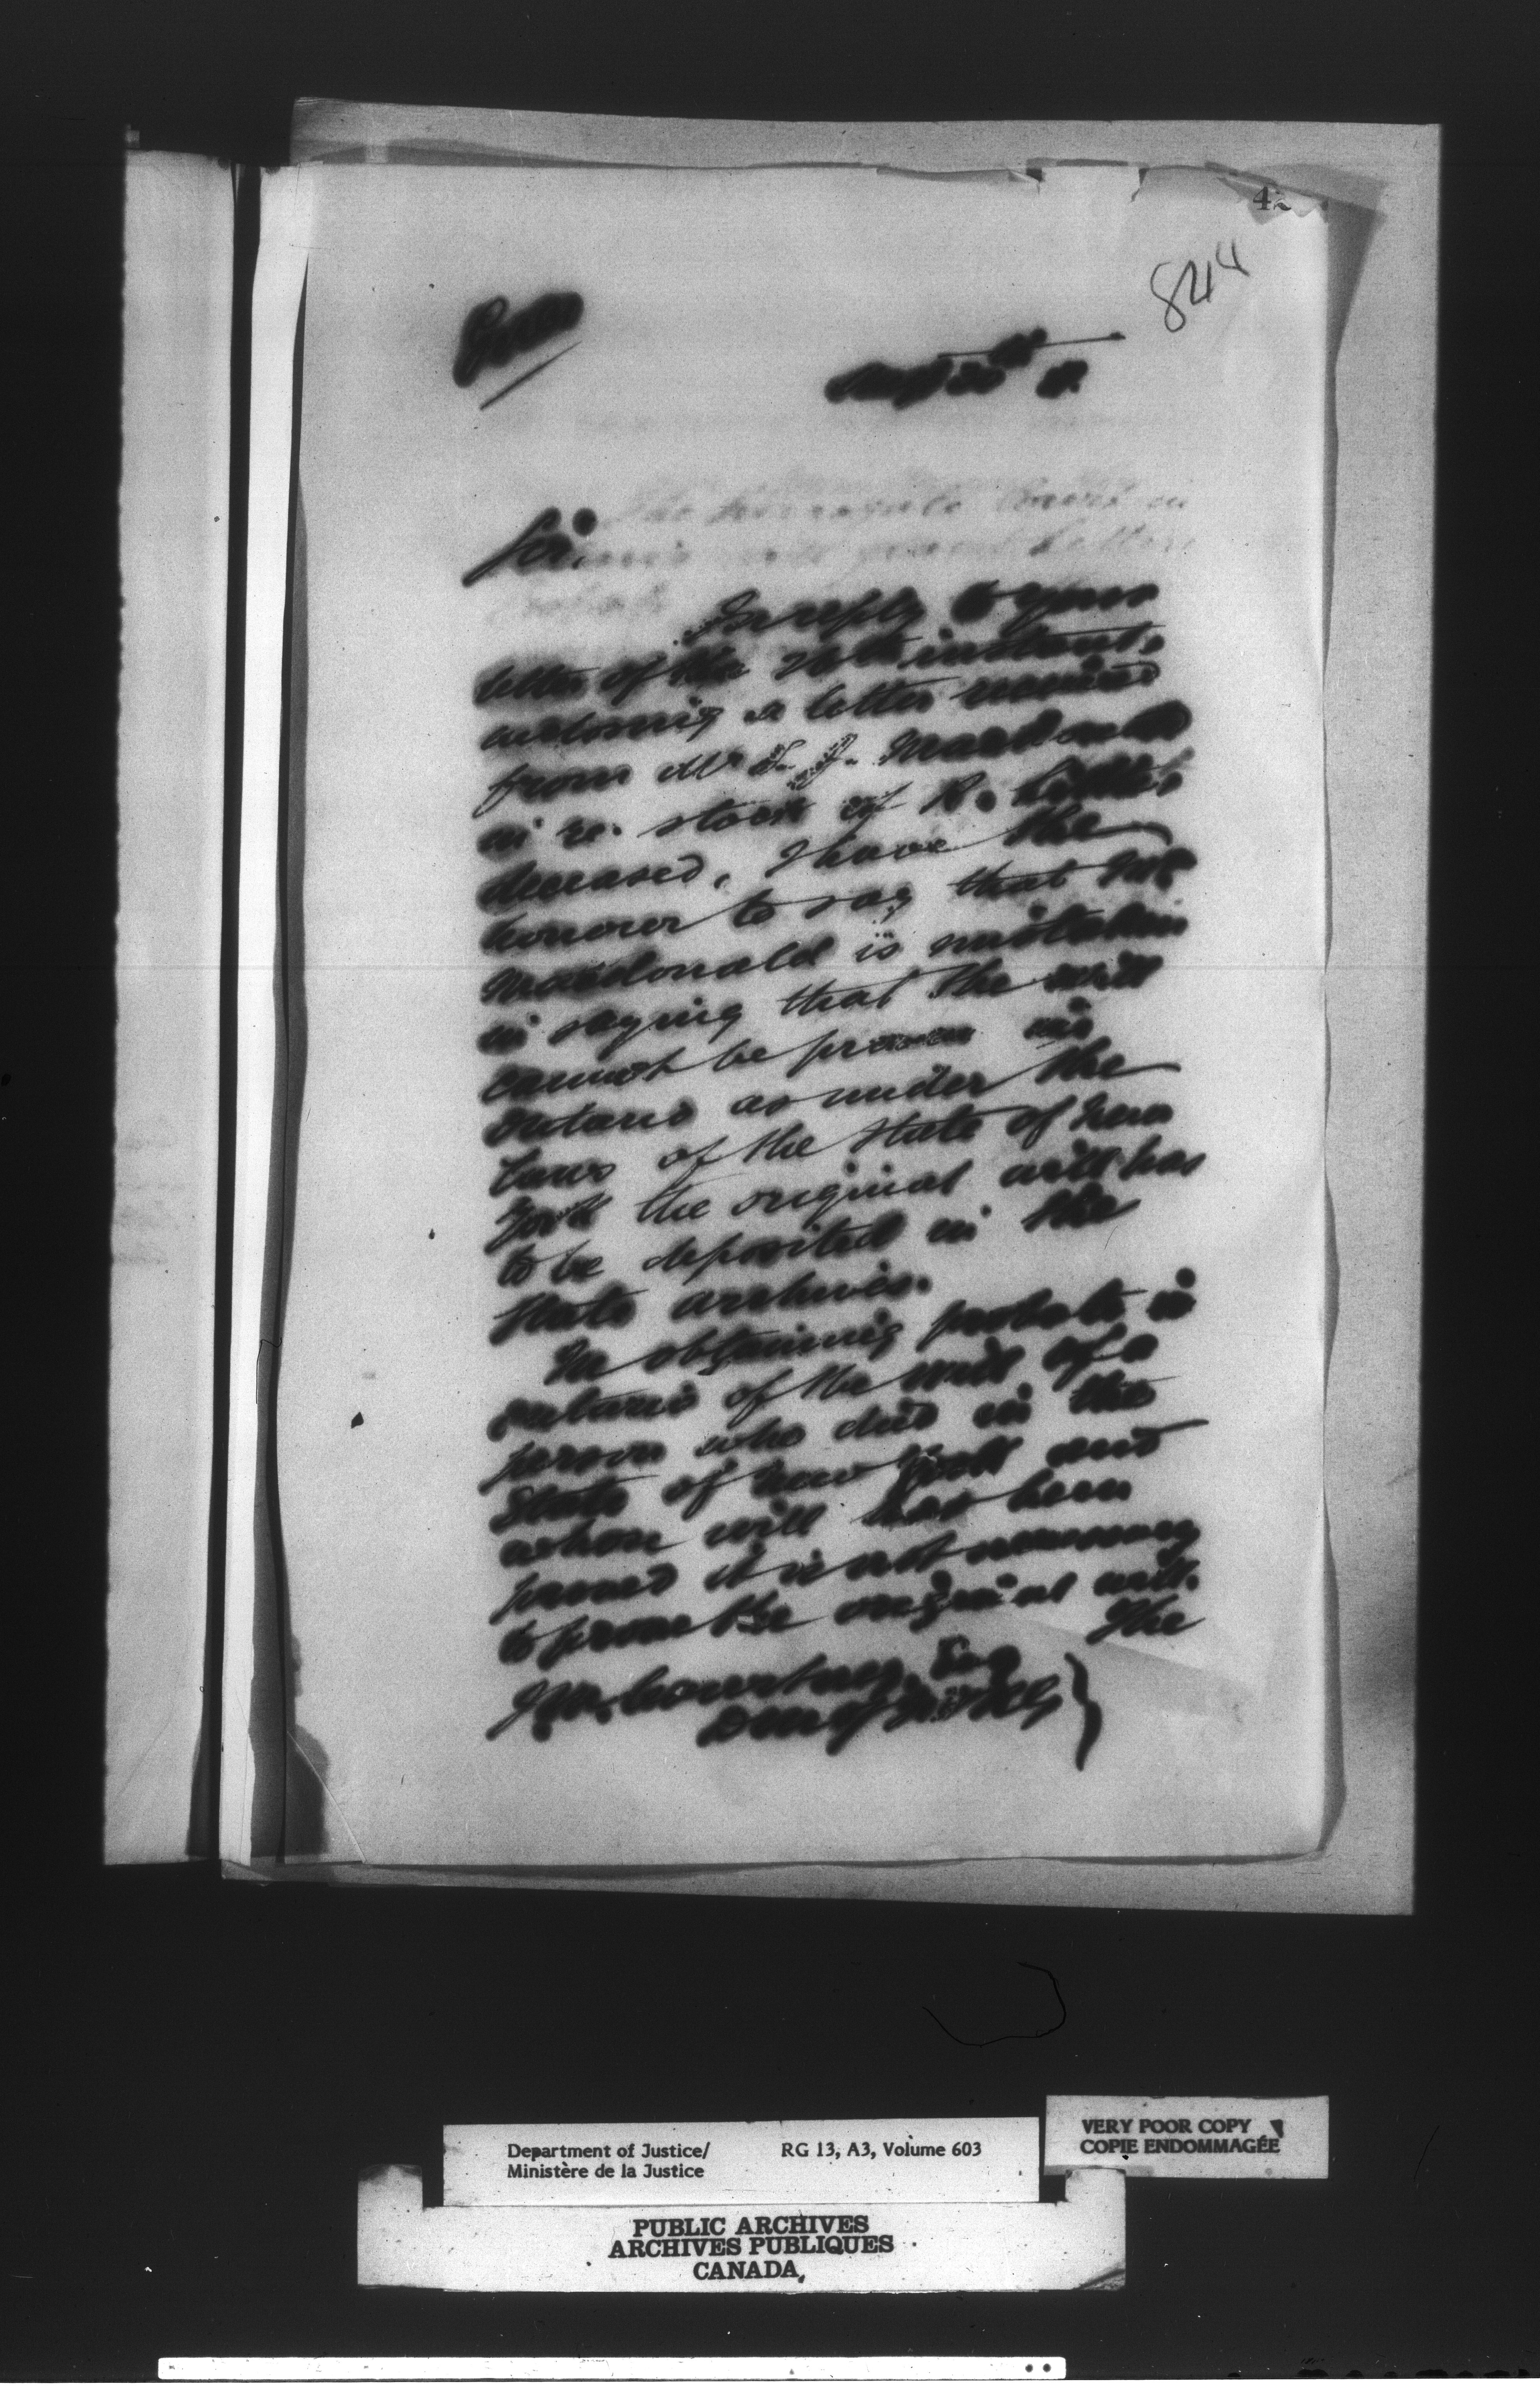 42
844
Sir,
In reply to your
letter of the instant,
enclosing a letter received
from Mr J. Macdonald
in re. stock of R.
deceased, I have the
honour to say that Mr
Macdonald is mistaken
in saying that the will
cannot be proven in
Ontario as under the
laws of the State of New
York the original will has
to be deposited in the
State archives.
In obtaining probate in
Ontario of the will of a
person who died in the
State of New York and
whose will has been
proved it is not necessary
to prove the original will.
The
J. M. Courtney, Esq
Department of Justice/
Ministère de la Justice
RG 13, A3, Volume 603
VERY POOR COPY
COPIE ENDOMMAGÉE
PUBLIC ARCHIVES
ARCHIVES PUBLIQUES
CANADA